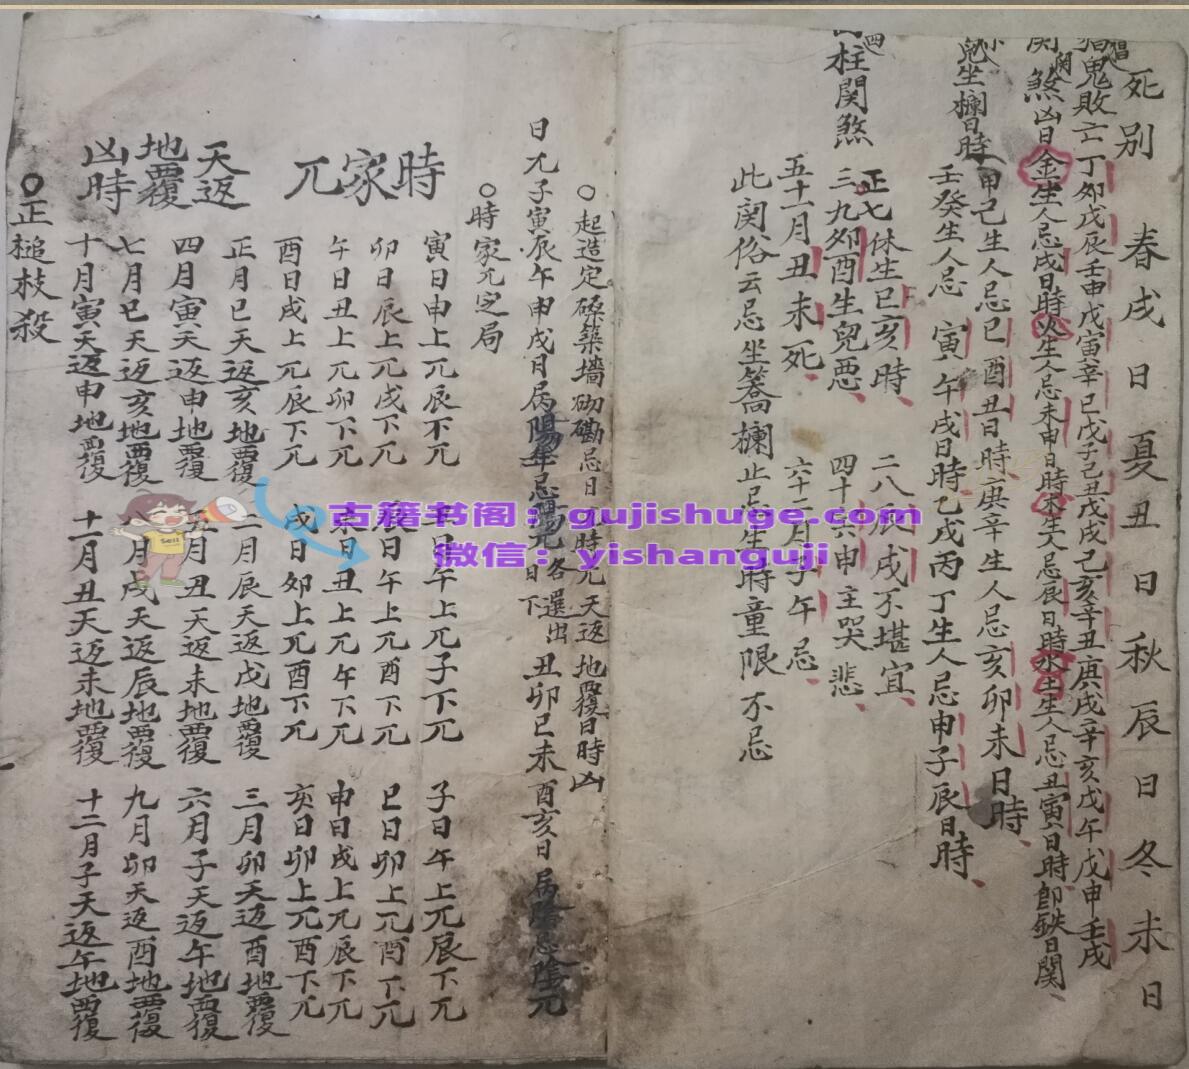 死别 春戌日 夏丑日 秋辰日 冬未日
猖鬼敗亡 丁夘戊辰壬申戊寅辛巳戊子己丑戊戌己亥辛丑庚戌辛亥戊午戊申壬戌
関煞凶日 金生人忌戌日時火生人忌未申日時木生人忌辰日時水土生人忌丑寅日時即鉄日関
児坐欄日時 甲己生人忌巳酉丑日時庚辛生人忌亥卯未日時
壬癸生人忌寅午戌日時乙戊丙丁生人忌申子辰日時
四柱関煞
正七休生巳亥時 二八辰戌不堪宜
三九夘酉生兒悪 四十六申主哭悲
五十一月丑未死 六十二月子午忌
此関俗云忌坐簥欄止忌生時童限不忌
○起造定磉築墻砌磡忌日兀時兀天返地覆日時凶
日兀子寅辰午申戌日属陽年忌陽兀各選出日下丑卯巳未酉亥日属陰忌陰兀
○時家兀定局
時家兀
寅日申上兀辰下兀 子下兀 子日午上兀辰下兀
卯日辰上兀戌下兀 辰日午上兀酉下兀 巳日卯上兀酉下兀
午日丑上兀卯下兀 未日丑上兀午下兀 申日戌上兀辰下兀
酉日戌上兀辰下兀 戌日夘上兀酉下兀 亥日卯上兀酉下兀
天返地覆凶時
正月巳天返亥地覆 二月辰天返戌地覆 三月卯天返酉地覆
四月寅天返申地覆 五月丑天返未地覆 六月子天返午地覆
七月巳天返亥地覆 月戌天返辰地覆 九月卯天返酉地覆
十月寅天返申地覆 十一月丑天返未地覆 十二月子天返午地覆
○正槌枝殺
古籍书阁：gujishuge.com
微信：yishanguji